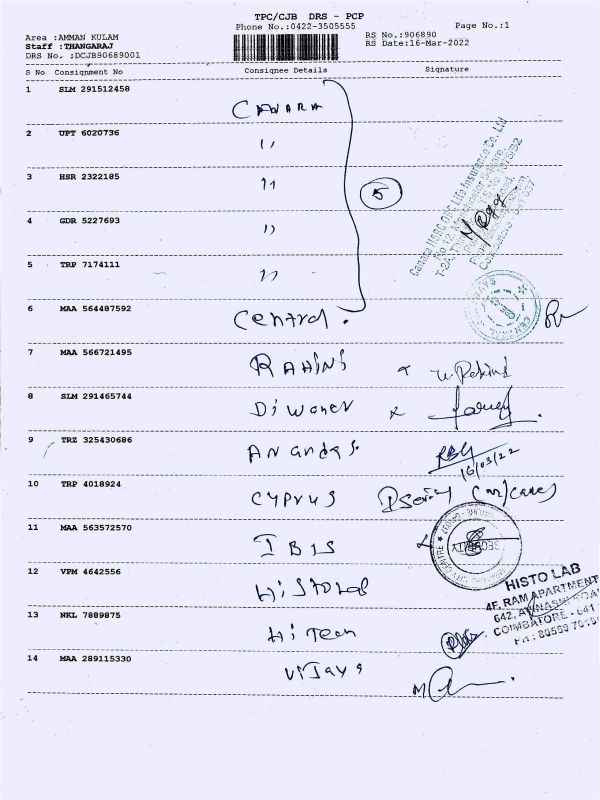 TPC/CJB DRS - PCP
Phone No.:0422-3505555 Page No.:1
Area :AMMAN KULAM RS No.:906890
Staff :THANGARAJ RS Date:16-Mar-2022
DRS No. :DCJB90689001
S No Consignment No Consignee Details Signature
1 SLM 291512458
CANARA
2 UPT 6020736
"
3 HSR 2322185
"
5
4 GDR 5227693
"
5 TRP 7174111
"
6 MAA 564487592
Central.
7 MAA 566721495
RAHINI
8 SLM 291465744
Diwaner
9 TRZ 325430686
Anandas
16/03/22
10 TRP 4018924
CYPRUS
11 MAA 563572570
IBIS
SECURITY
12 VPM 4642556
HISTO LAB
HISTO LAB
4F, RAM APARTMENT
COIMBATORE - 641
13 NKL 7889875
Hi Tech
14 MAA 289115330
Vijaya